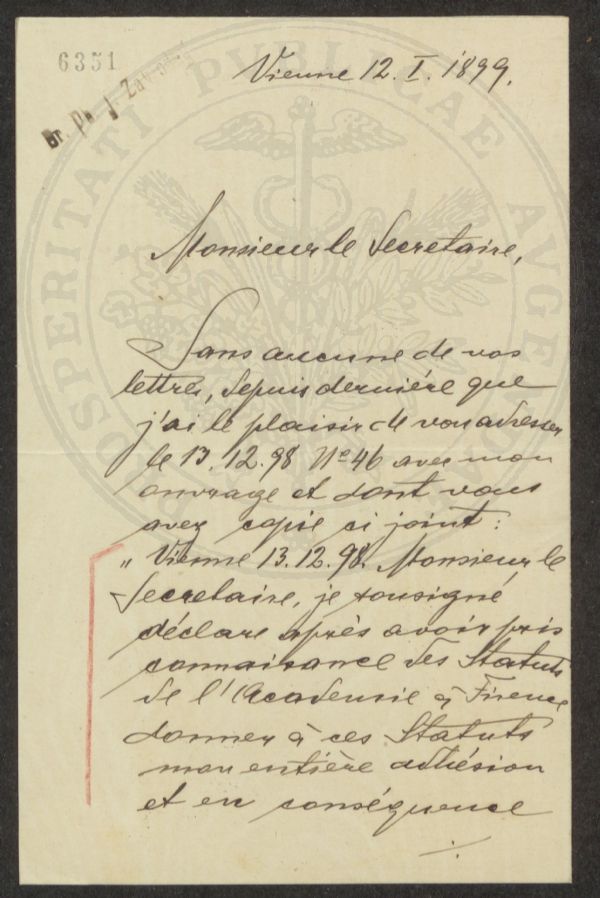 6351
Dr. Ph. J.
PROSPERITATI PVBLICAE AVGENDAE
Vienne 12. I. 1899.
Monsieur le Secretaire,
Sans aucune de vos
lettres, depuis dernière que
j'ai le plaisir de vous adresser
le 13. 12. 98 Nº 46 avec mon
ouvrage et dont vous
avez copie ci joint :
" Vienne 13. 12. 98. Monsieur le
Secretaire, je sousigné
déclare après avoir pris
connaisance des Statuts
de l'Academie à Firence
donner à ces Statuts
mon entière adhésion
et en conséquence
./.